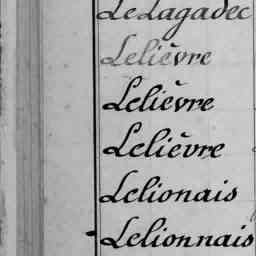 LeLagadec
Lelièvre
Lelièvre
Lelièvre
Lelionais
Lelionnais